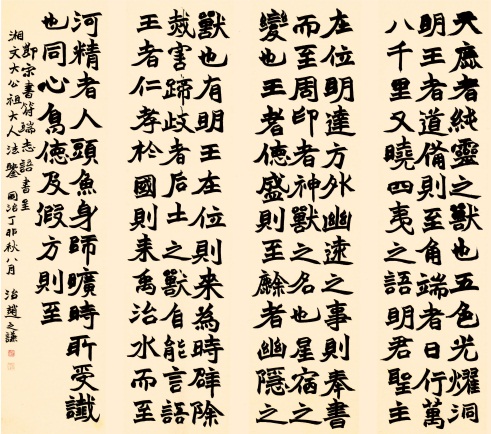 天鹿者純靈之獸也五色光燿洞
明王者道備則至角端者日行萬
八千里又曉四夷之語明君聖主
在位明達方外幽遠之事則奉書
而至周印者神獸之名也星宿之
變也王者德盛則至者幽隱之
獸也有明王在位則来為時辟除
烖害蹏歧者后土之獸自能言語
王者仁孝於國則来禹治水而至
河精者人頭魚身師曠時所受讖
也同心鳥德及遐方則至
節宋書符瑞志語書呈
湘文大公祖大人法鑒 同治丁卯秋八月 治趙之謙